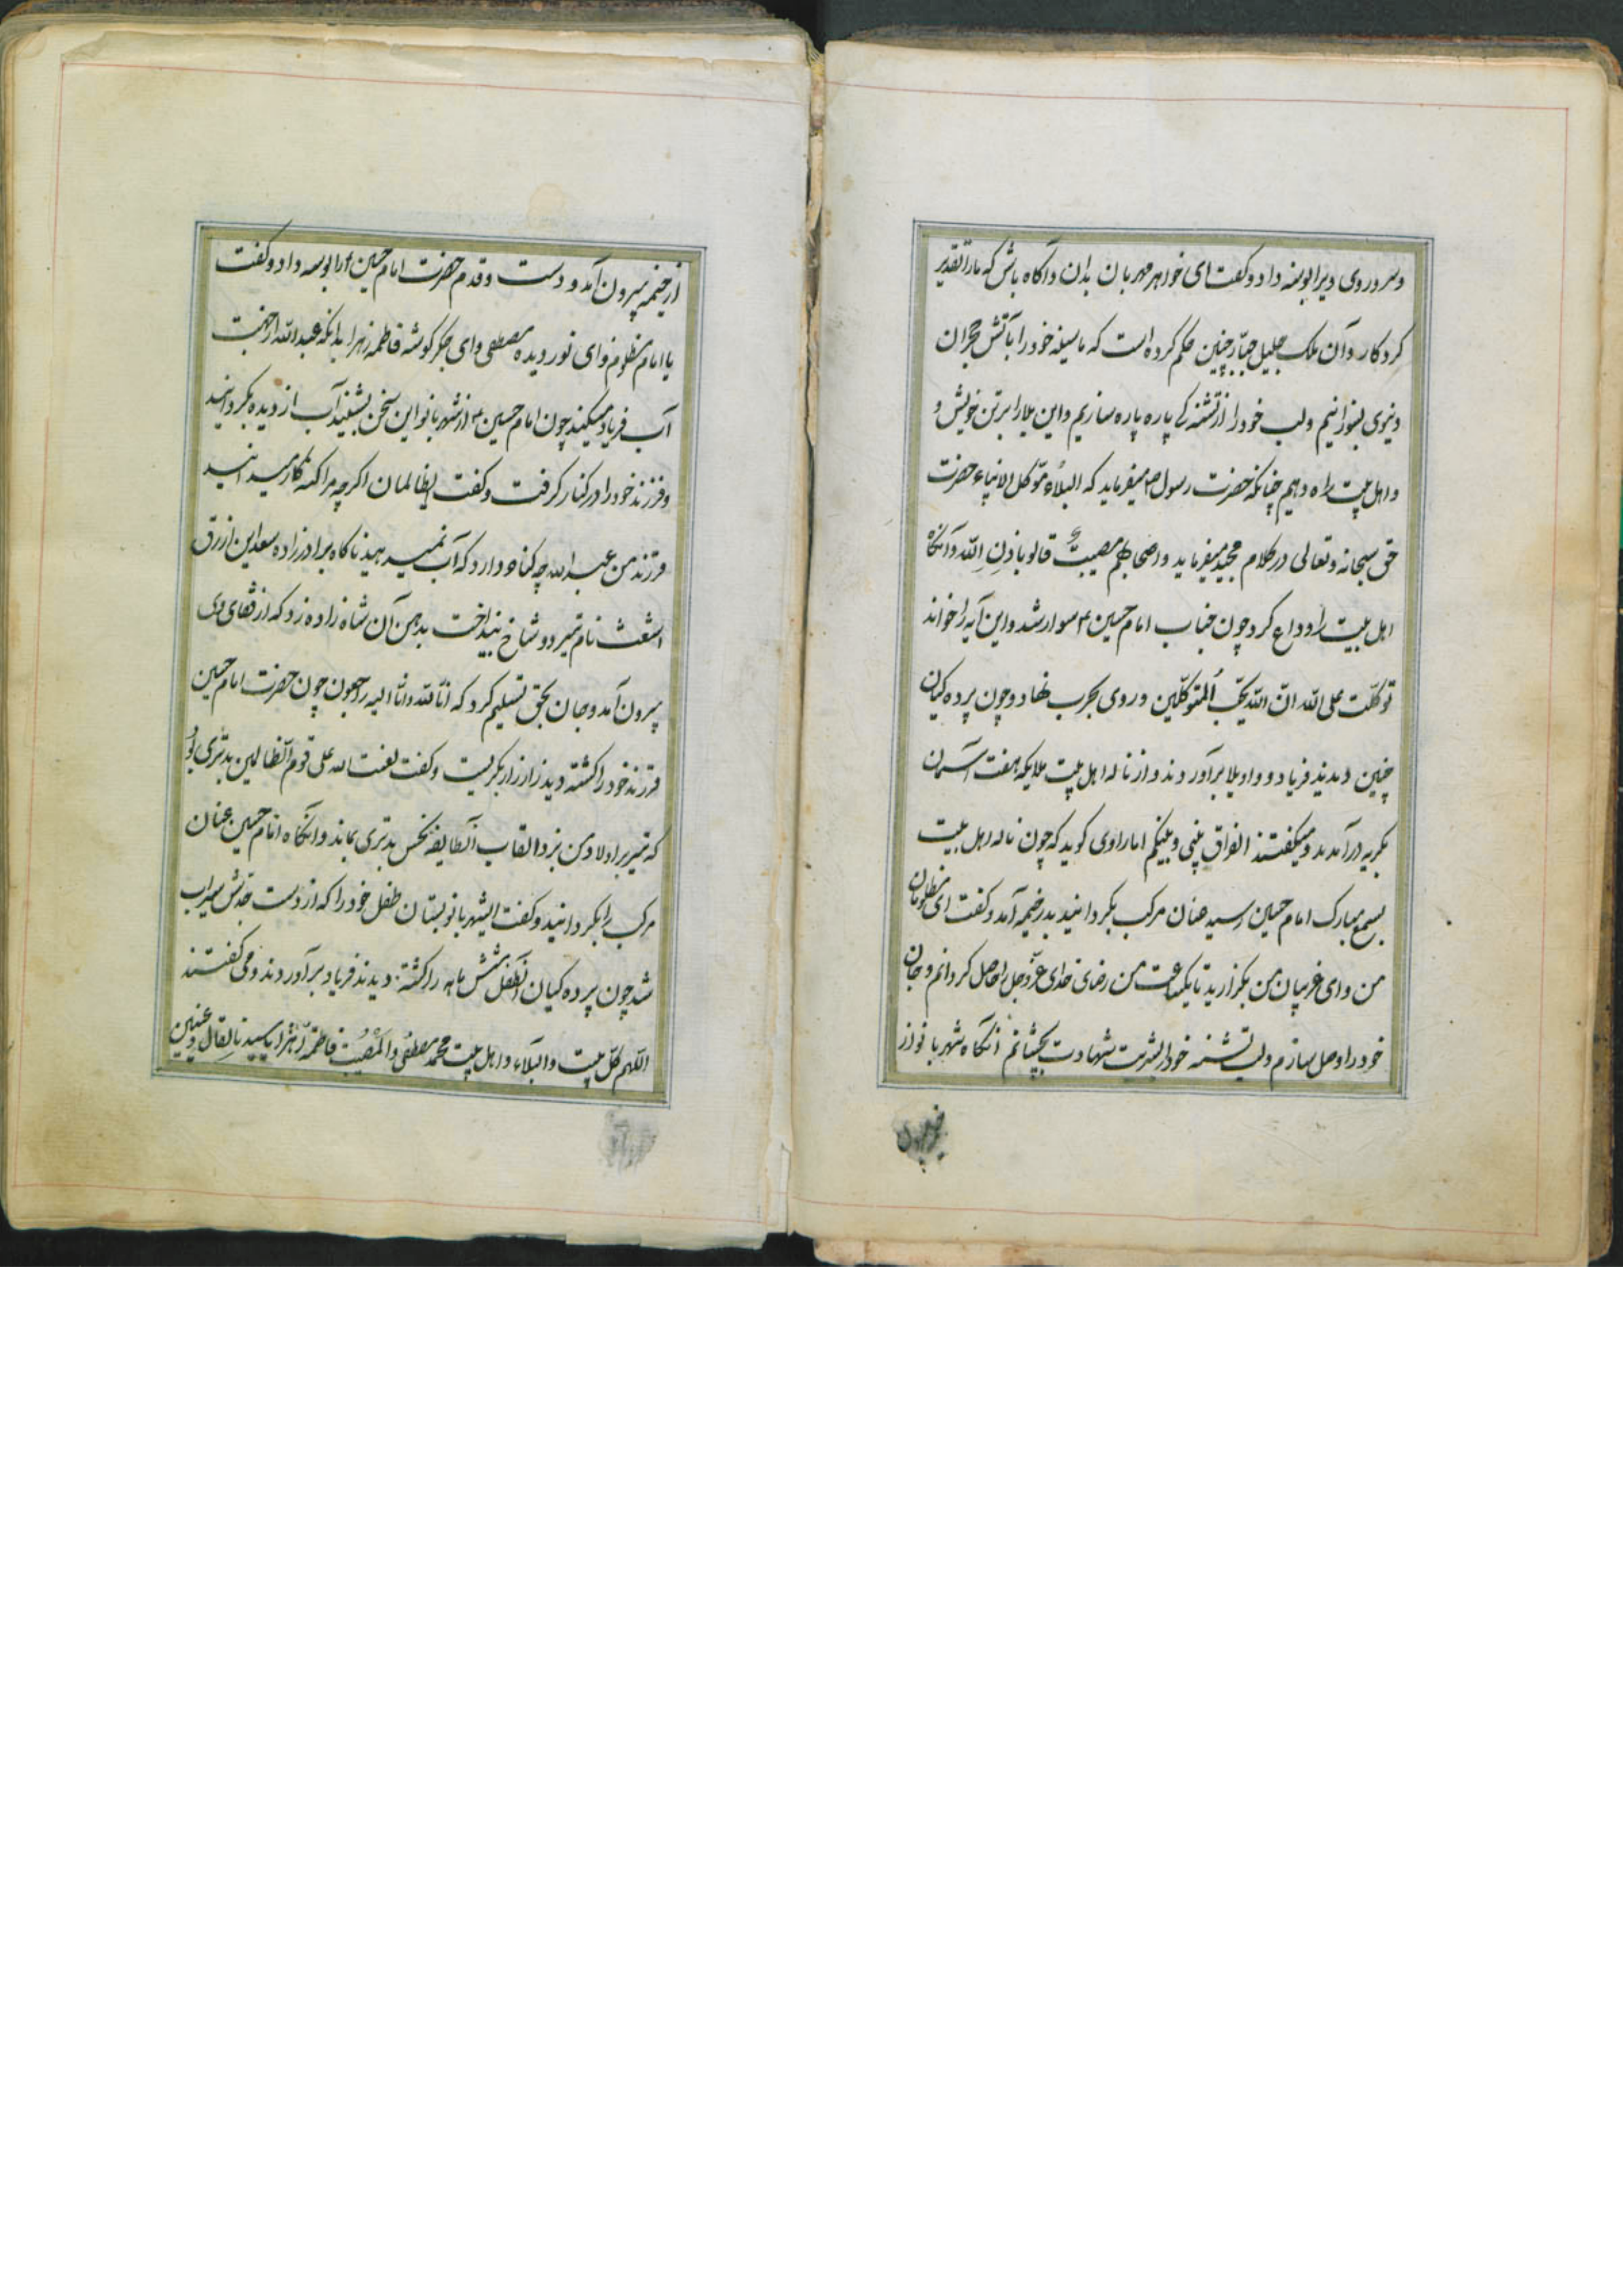 وسر و روی ویرا بوسه داد و کفت ای خواهر مهربان بدان و آکاه باش که ما را تقدیر
کردکار و آن ملک جلیل جبّار چنین حکم کرده است که ما سینه خود را بآتش هجران
دنیوی بسوزانیم ولب خود را از تشنه کے پاره پاره سازیم واین بلا را بر تن خویش و
واهل بیت راه دهیم چنانکه حضرت رسول ص میفرماید که البلاُء مؤکل الانبیاء حضرت
حق سبحانه وتعالی در کلام مجید میفرماید واصحابهم مصیبتٌ قالو باذنِ الله وآنکاه
اهل بیت را وداع کرد چون جناب امام حسین ۴ سوار شد واین آیه را خواند
توکلّت علی الله انّ الله یحّب اُلمتوکلّین و روی بحرب نهاد و چون پرده کیان
چنین دیدند فریاد و واویلا برآوردند و از ناله اهل بیت ملایکه هفت آسمان
بکریه درآمدند ومیکفتند الفراق بینی وبینکم اما راوی کوید که چون ناله اهل بیت
بسمع مبارک امام حسین رسید عنان مرکب بکردانید بدر خیمه آمد و کفت ای مظلومان
من وای غریبان من بکزارید تا یکساعت من رضای خدای عزّوجل را حاصل کردانم وجان
خود را وصل سازم ولب تشنه خود را بشربت شهادت بچشانم آنکاه شهربانو از
از خیمه بیرون آمد و دست وقدم حضرت امام حسین ۴ را بوسه داد و کفت
یا امام مظلوم وای نور دیده مصطفی وای جکر کوشه فاطمه زهرا بدانکه عبدالله از جهت
آب فریاد میکند چون امام حسین ۴ از شهربانو این سخن بشنید آب از دیده بکردانید
وفرزند خود را در کنار کرفت و کفت ایظالمان اکرچه مرا کنه کار میدانید
فرزند من عبدالله چه کناه دارد که آب نمیدهید ناکاه برادرزاده سعد ابن ازرق
اشعث نام تیر دو شاخ بینداخت بدهن آن شاه زاده زد که از قفای وی
بیرون آمد وجان بحق تسلیم کرد که انّا لله وانّا الیه راجعون چون حضرت امام حسین
فرزند خود را کشته دید زار زار بکریست و کفت لعنت الله علی قوم الظالمین بد تیری بُو
که تیر بر اولاد من بزد القاب آنطایفه نجس بدتری بماند وانکاه امام حسین عنان
مرکب را بکردانید و کفت ایشهربانو بستان طفل خود را که از دست جدش سیراب
شد چون پرده کیان آنطفل شش ماهه را کشته دیدند فریاد برآوردند و می کفتند
اللهم کلّ بیت والبلاء واهل بیت محمد مصطفی والمصُیبت فاطمه زهرا